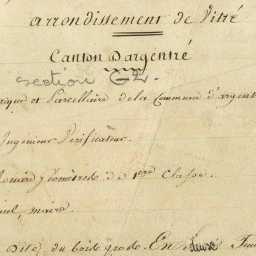 arrondissement de Vitré
Canton D'argentré
section G2.
rique et Parcellaire de la Commune d'argent
Ingenieur Verificateur.
Geomètre de 1ere Classe.
maire.
Dité du bois gros. En deux Feui